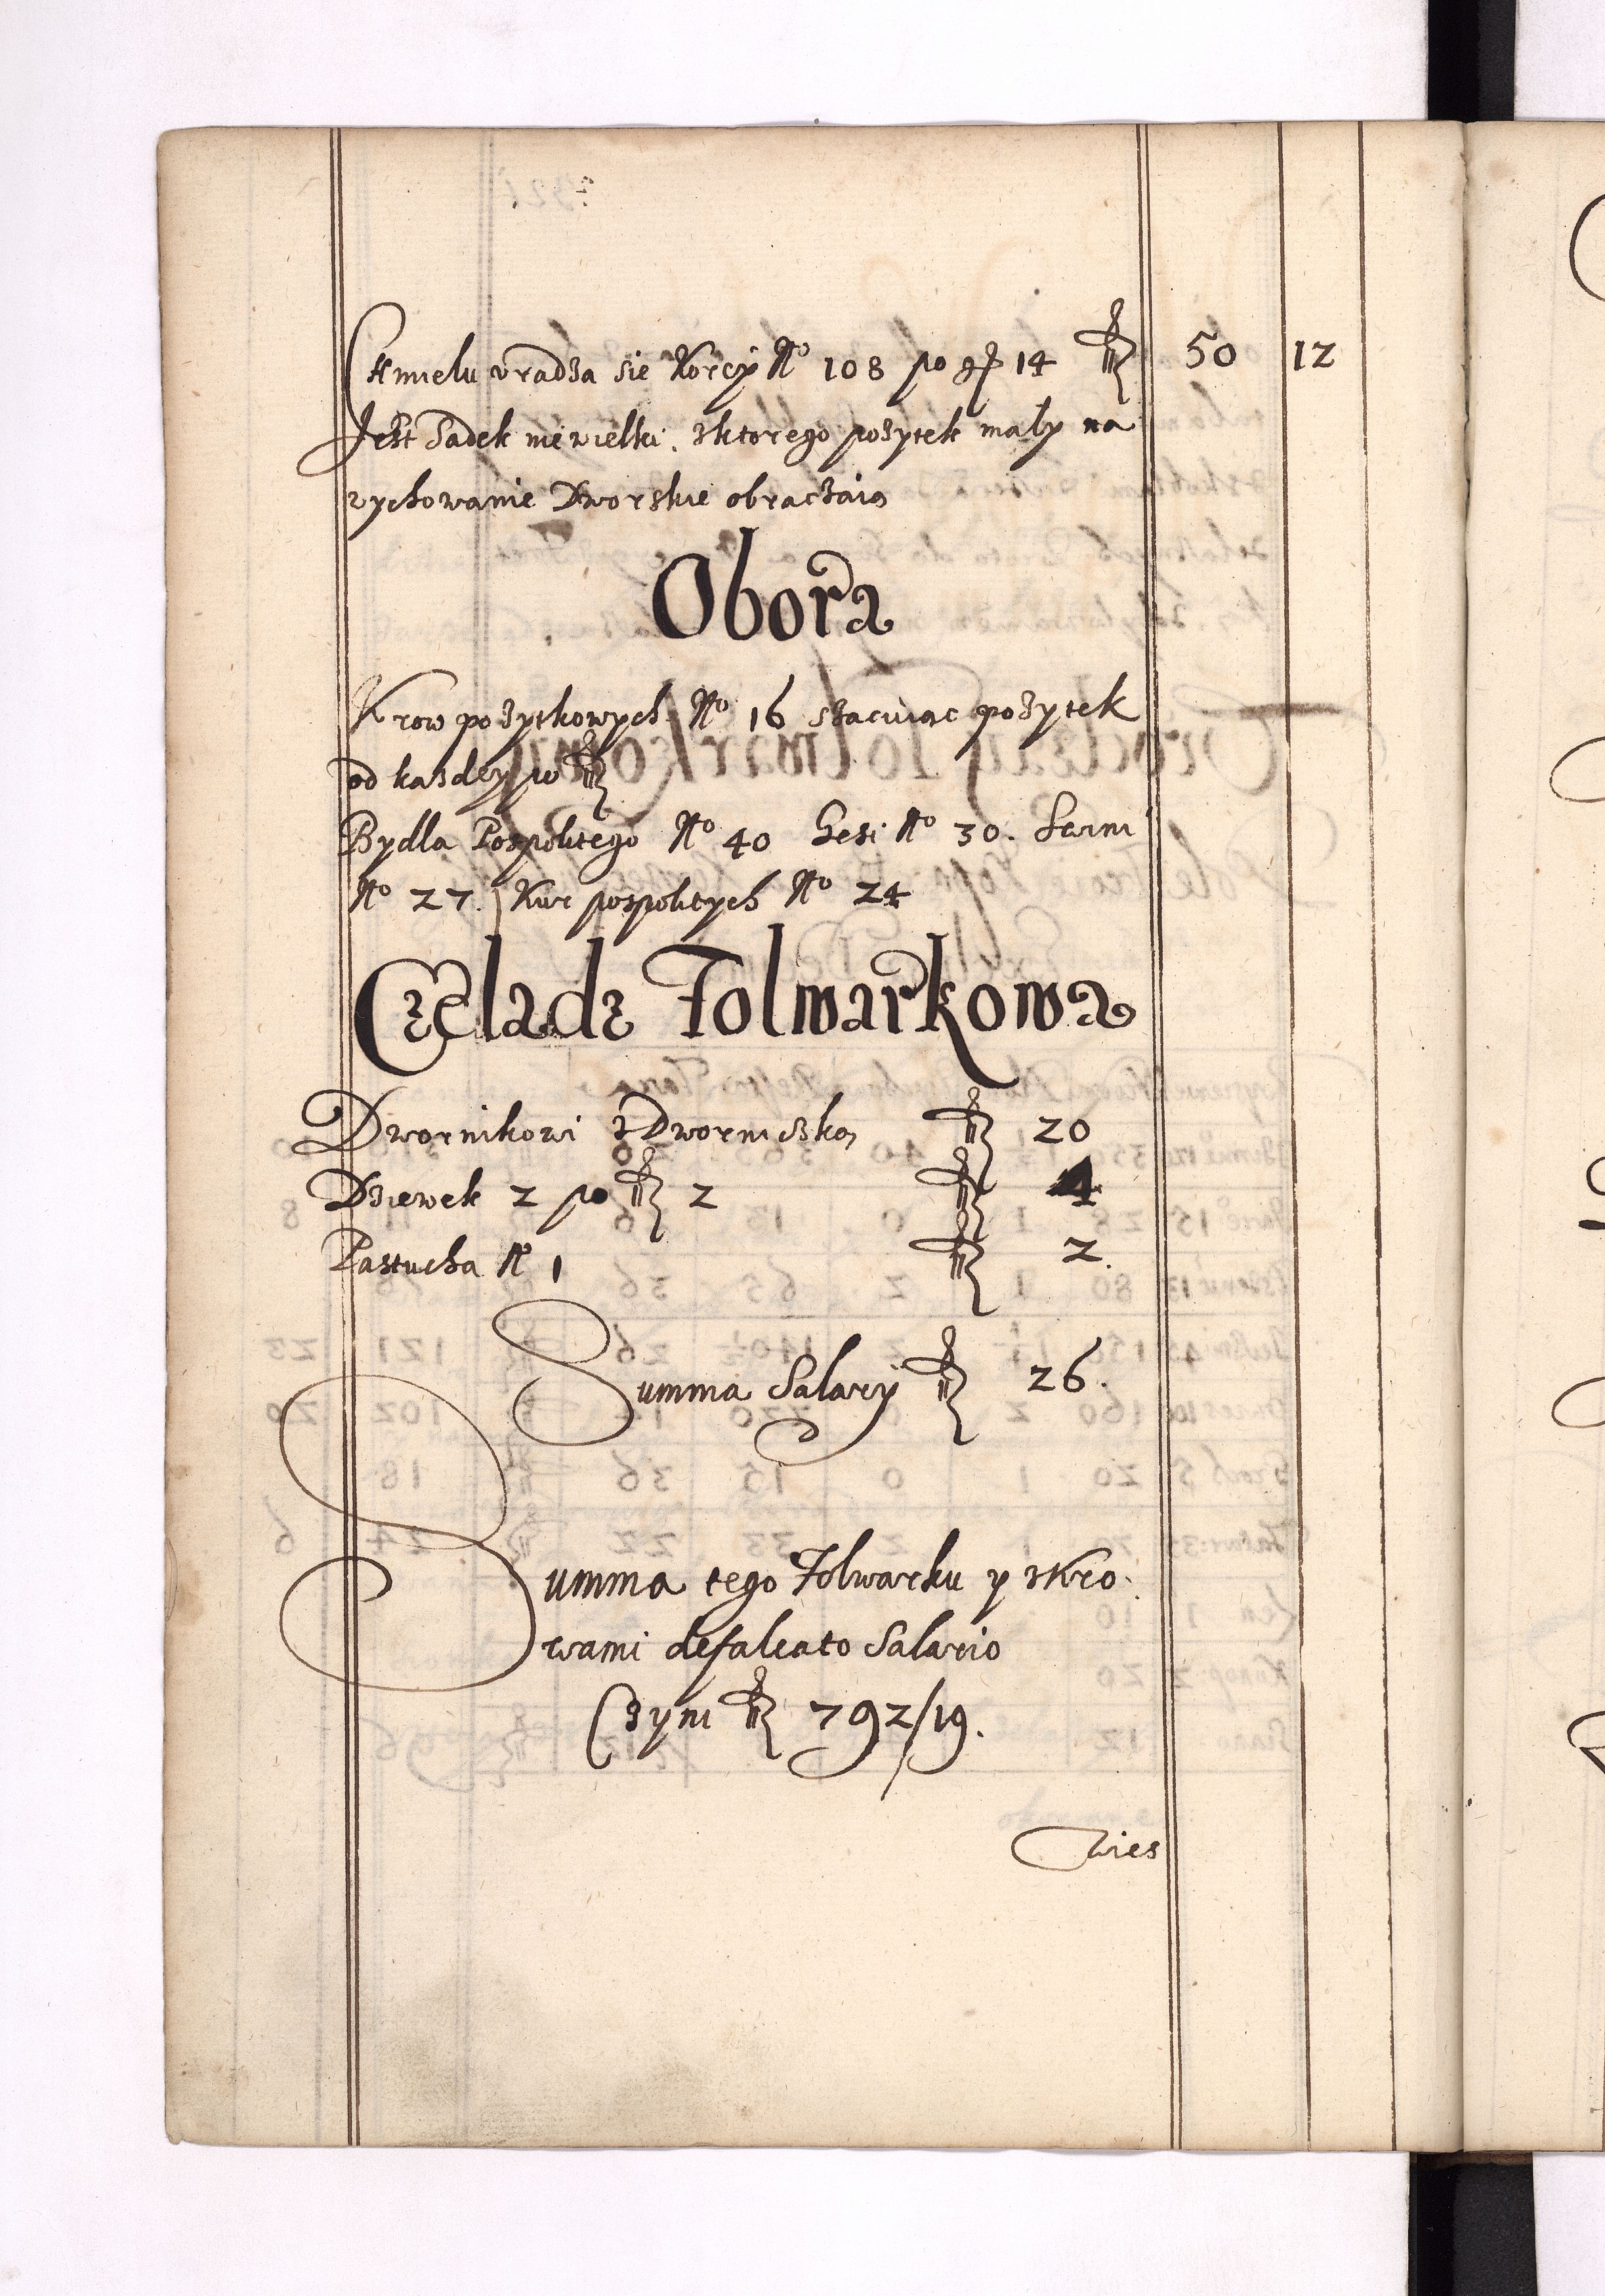 Chmielu vradza sie Korcy No 108 po gr 14 fl 50 12
Jest Sadek niewielki, z ktorego pozytek maly na
wychowanie Dworskie obraczaią
Obora
Krow pozytkowych No 16 szacuiąc pozytek
od kazdey po fl
Bydla Pospolitego No 40 Gesi No 30.
No 27. Kur pospolitych No 24
Czeladz Folwarkowa
Dwornikowi z Dworniczką fl 20
Dziewek 2 po fl 2 fl 4
Pastucha No 1 fl 2.
Summa Salary fl 26.
Summa tego Folwarku y z Kro
wami defalcato Salario
Czyni fl 792/19.
Wies